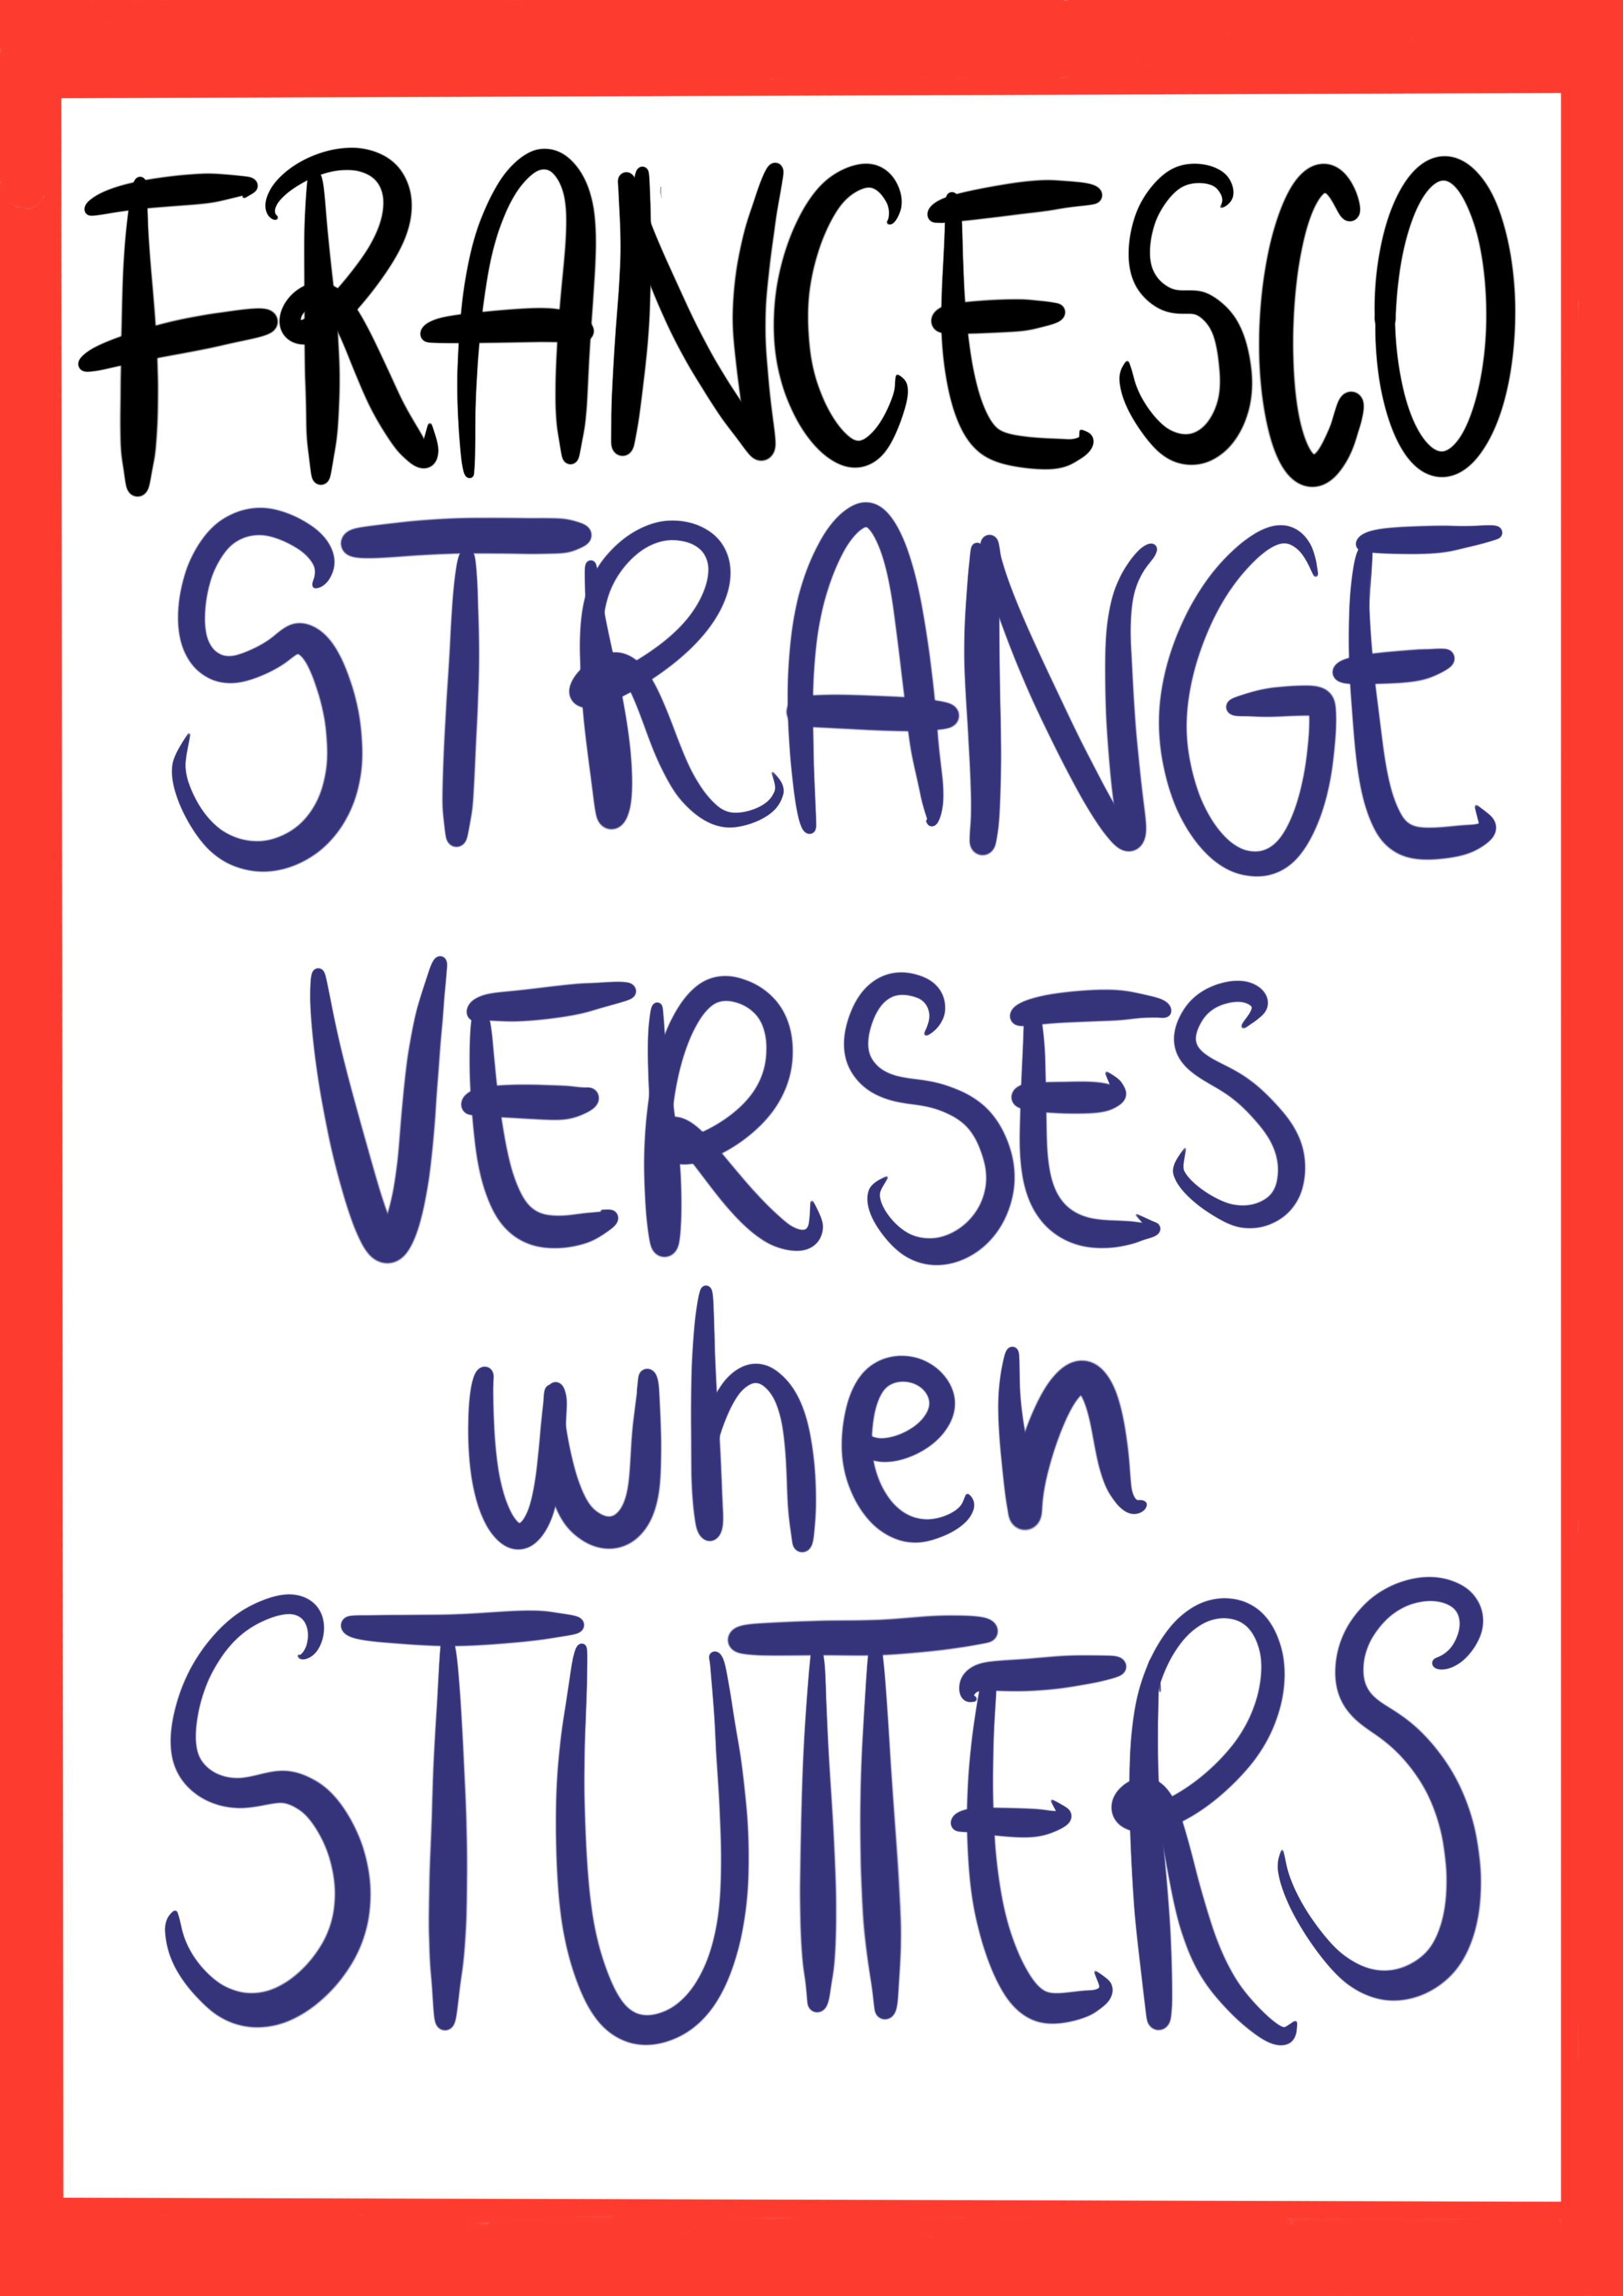 FRANCESCO
STRANGE
VERSES
when
STUTTERS